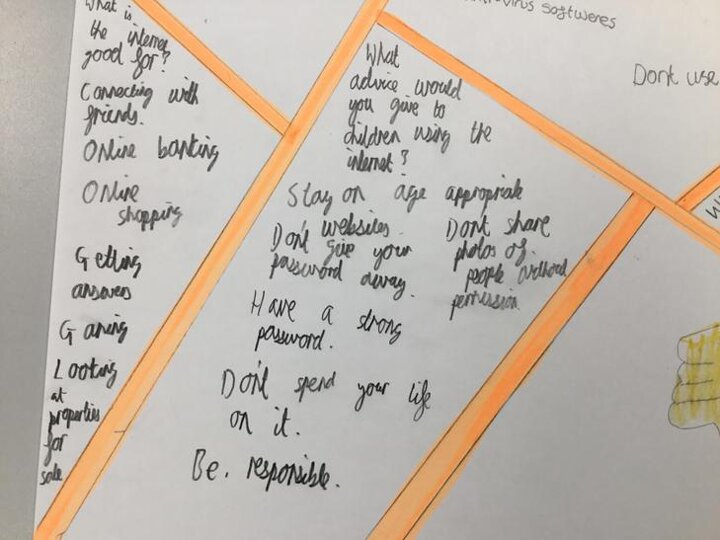 What is
the internet
good for?
Connecting with
friends.
Online banking
Online
shopping
Getting
answers
Gaming
Looking
at
properties
for
sale
What
advice would
you give to
children using the
internet?
Stay on age appropriate
websites.
Don't give your
password away.
Don't share
photos of
people without
permission
Have a strong
password.
Don't spend your life
on it.
Be. responsible.
softweres
Dont use